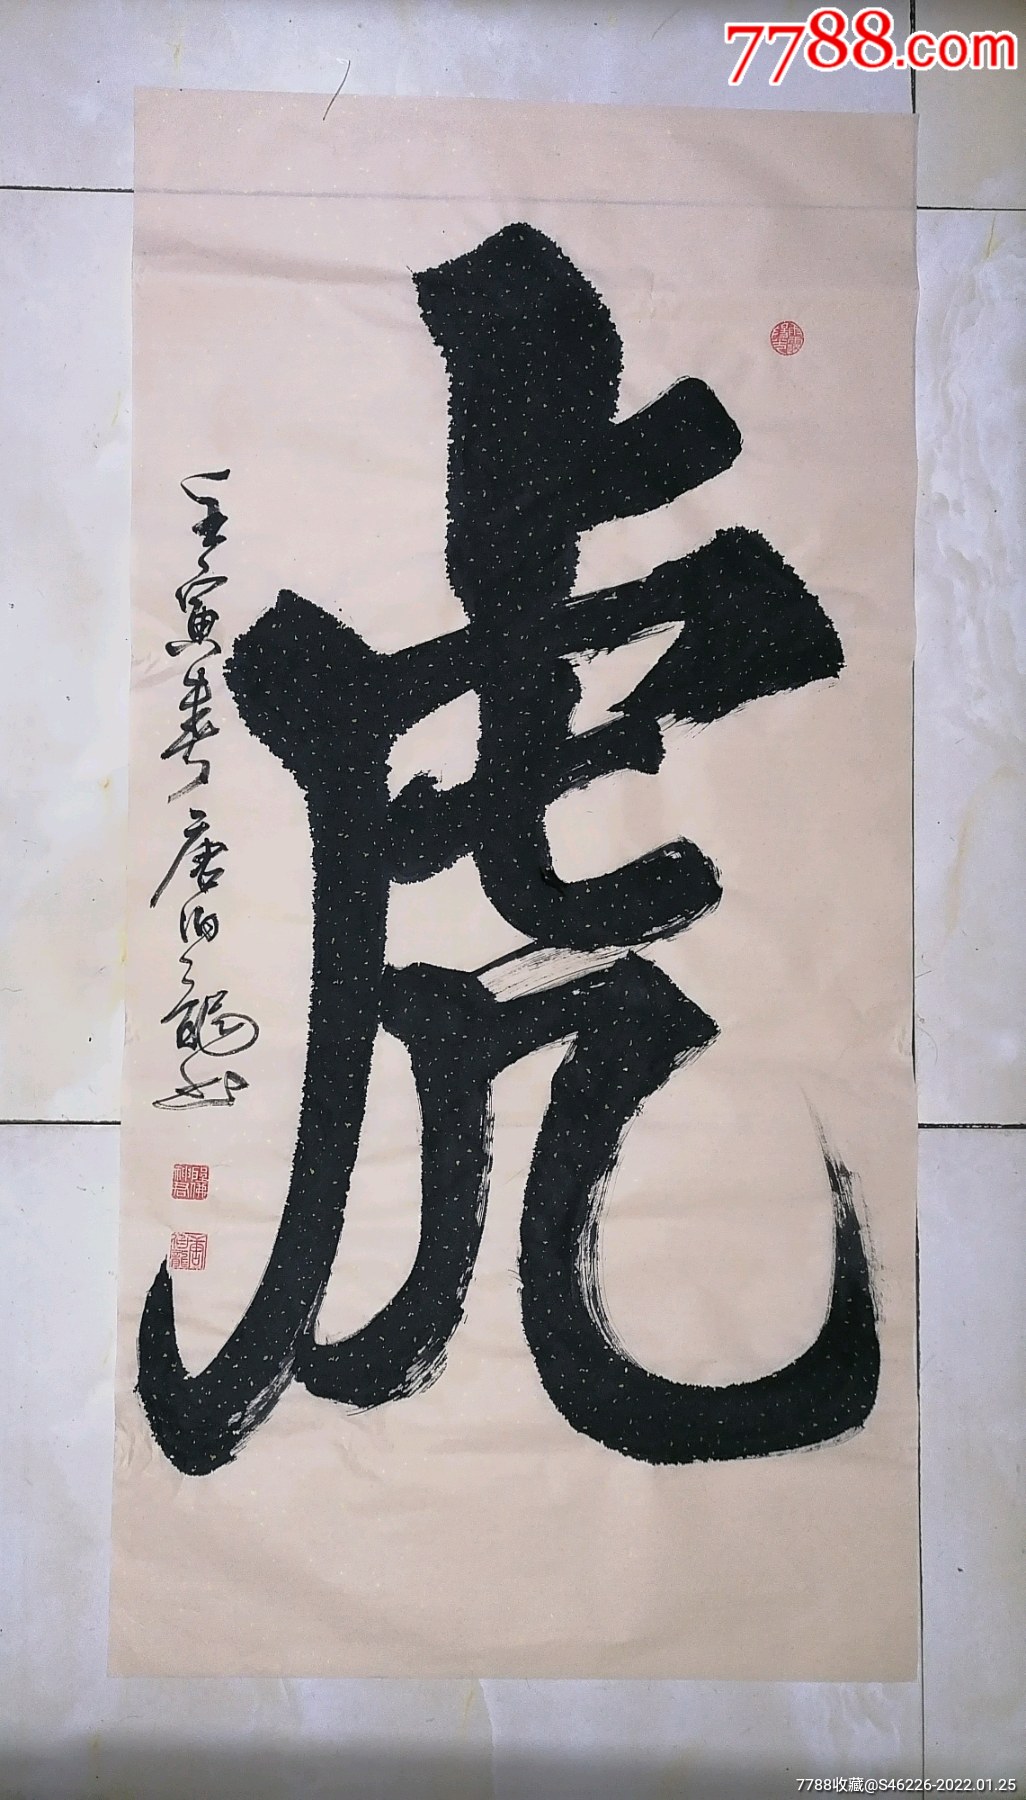 7788.com
虎
壬寅春唐伯龍書
唐伯龍
7788收藏@S46226-2022.01.25